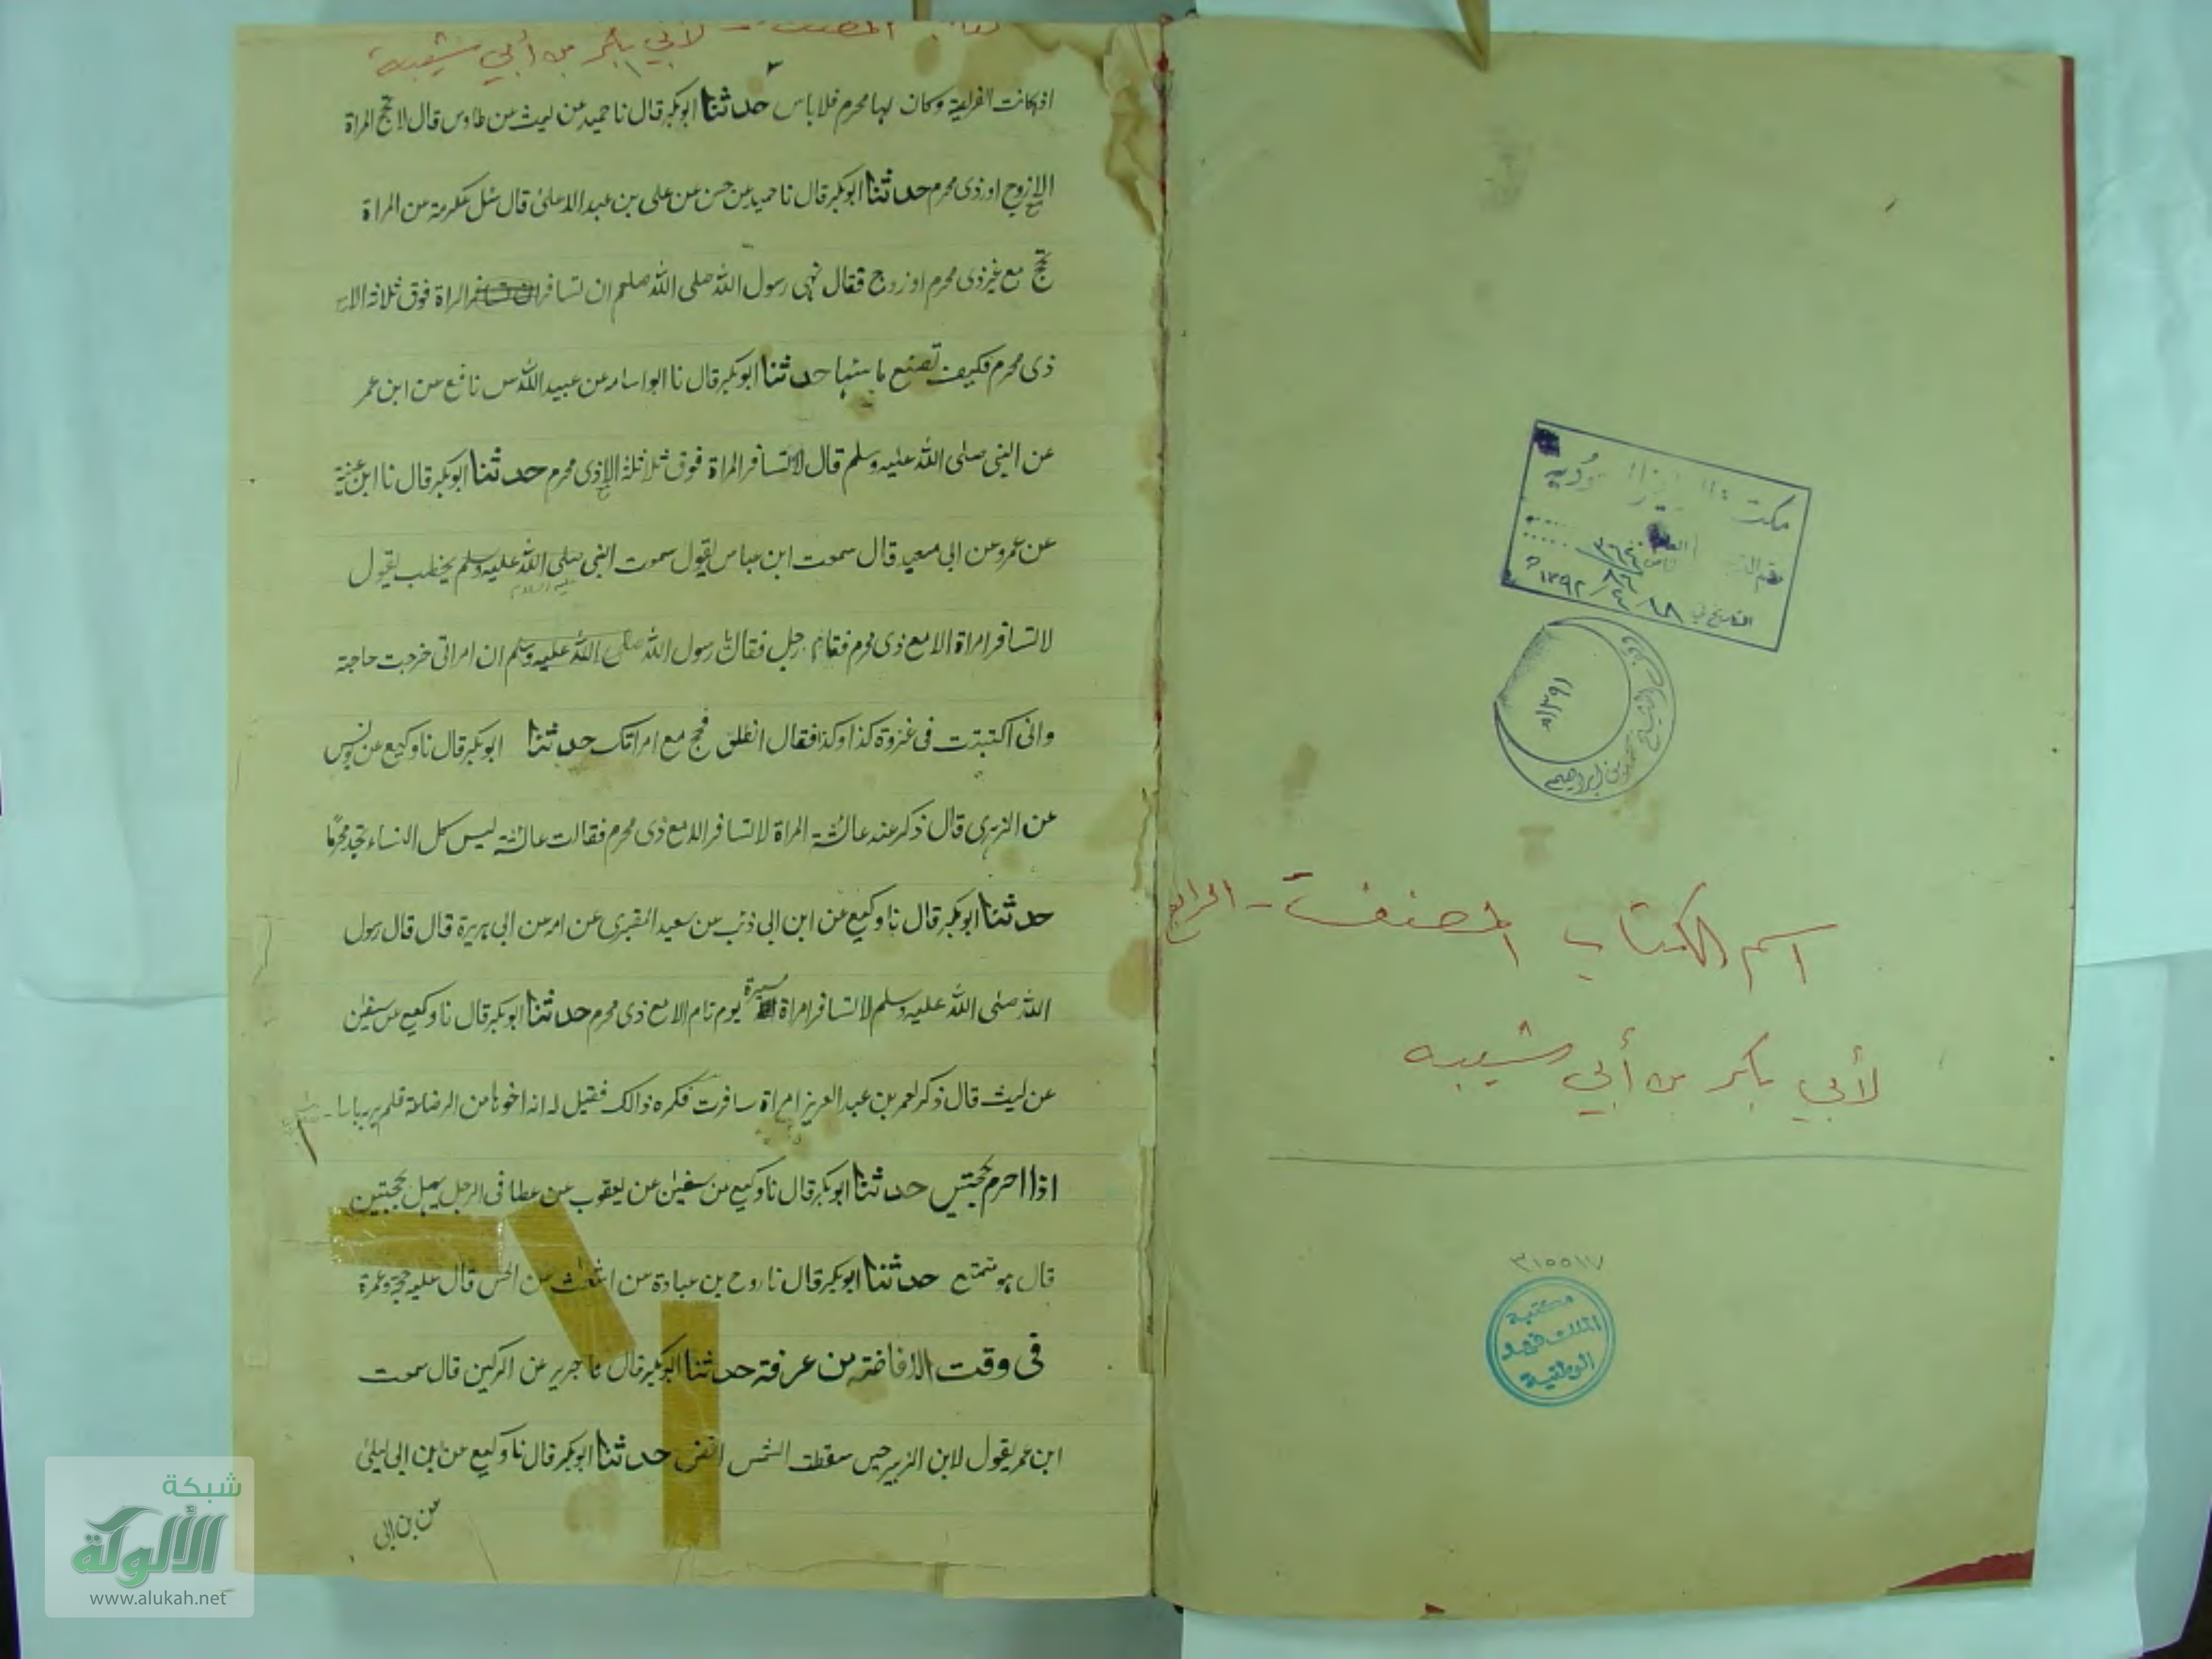 مكتبة
رقم
التاريخ في ١٨ / / ١٣٩٢ هـ
محمد بن ابراهيم
١٣٩١هـ
اسم الكتاب المصنف - الرابع
لأبي بكر بن أبي شيبه
٣١٥٥١٧
مكتبة
الملك فهد
الوطنية
كتاب المصنف - لأبي بكر بن أبي شيبه
٣
اذا كانت الفريضة وكان لها محرم فلا باس حدثنا ابوبكر قال نا حميد عن ليث عن طاوس قال لا تحج المراة
الا زوج او ذى محرم حدثنا ابوبكر قال نا حميد عن حسن عن على بن عبد الاعلىٰ قال سئل عكرمة عن المراة
تحج مع غير ذى محرم او زوج فقال نهى رسول الله صلى الله صلعم ان تسافر المراة فوق ثلاثة الا مع
ذى محرم فكيف تصنع ما شيا حدثنا ابوبكر قال نا ابو اسامه عن عبيد الله عن نافع عن ابن عمر
عن النبى صلى الله عليه وسلم قال لا تسافر المراة فوق ثلاثة الا ذى محرم حدثنا ابوبكر قال نا ابن عيينة
عن عمرو عن ابى معبد قال سمعت ابن عباس يقول سمعت النبى صلى الله عليه وسلم يخطب يقول
لا تسافر امراة الا مع ذى محرم فقام رجل فقال يا رسول الله صلى الله عليه وسلم ان امراتى خرجت حاجة
وانى اكتتبت فى غزوة كذا وكذا فقال انطلق فحج مع امراتك حدثنا ابوبكر قال نا وكيع عن يونس
عن الزهرى قال ذكر عند عائشة المراة لا تسافر الا مع ذى محرم فقالت عائشة ليس كل النساء تجد محرمًا
حدثنا ابوبكر قال نا وكيع عن ابن ابى ذئب عن سعيد المقبرى عن ابى هريرة قال قال رسول
الله صلى الله عليه وسلم لا تسافر امراة مسيرة يوم تام الا مع ذى محرم حدثنا ابوبكر قال نا وكيع عن سفين
عن ليث قال ذكر لعمر بن عبد العزيز امراة سافرت فكره ذالك فقيل له انه اخوها من الرضاعة فلم ير به باسا -
اذا احرم بحجتين حدثنا ابوبكر قال نا وكيع عن سفين عن يعقوب عن عطا فى الرجل يهل بحجتين
قال هو متمتع حدثنا ابوبكر قال نا روح بن عبادة عن اشعث عن الحسن قال عليه حجة وعمرة
فى وقت الافاضة من عرفة حدثنا ابوبكر قال نا جرير عن الركين قال سمعت
ابن عمر يقول لابن الزبير حين سقطت الشمس افض حدثنا ابوبكر قال نا وكيع عن ابن ابى ليلىٰ
عن بن ابى
شبكة
الألوكة
www.alukah.net